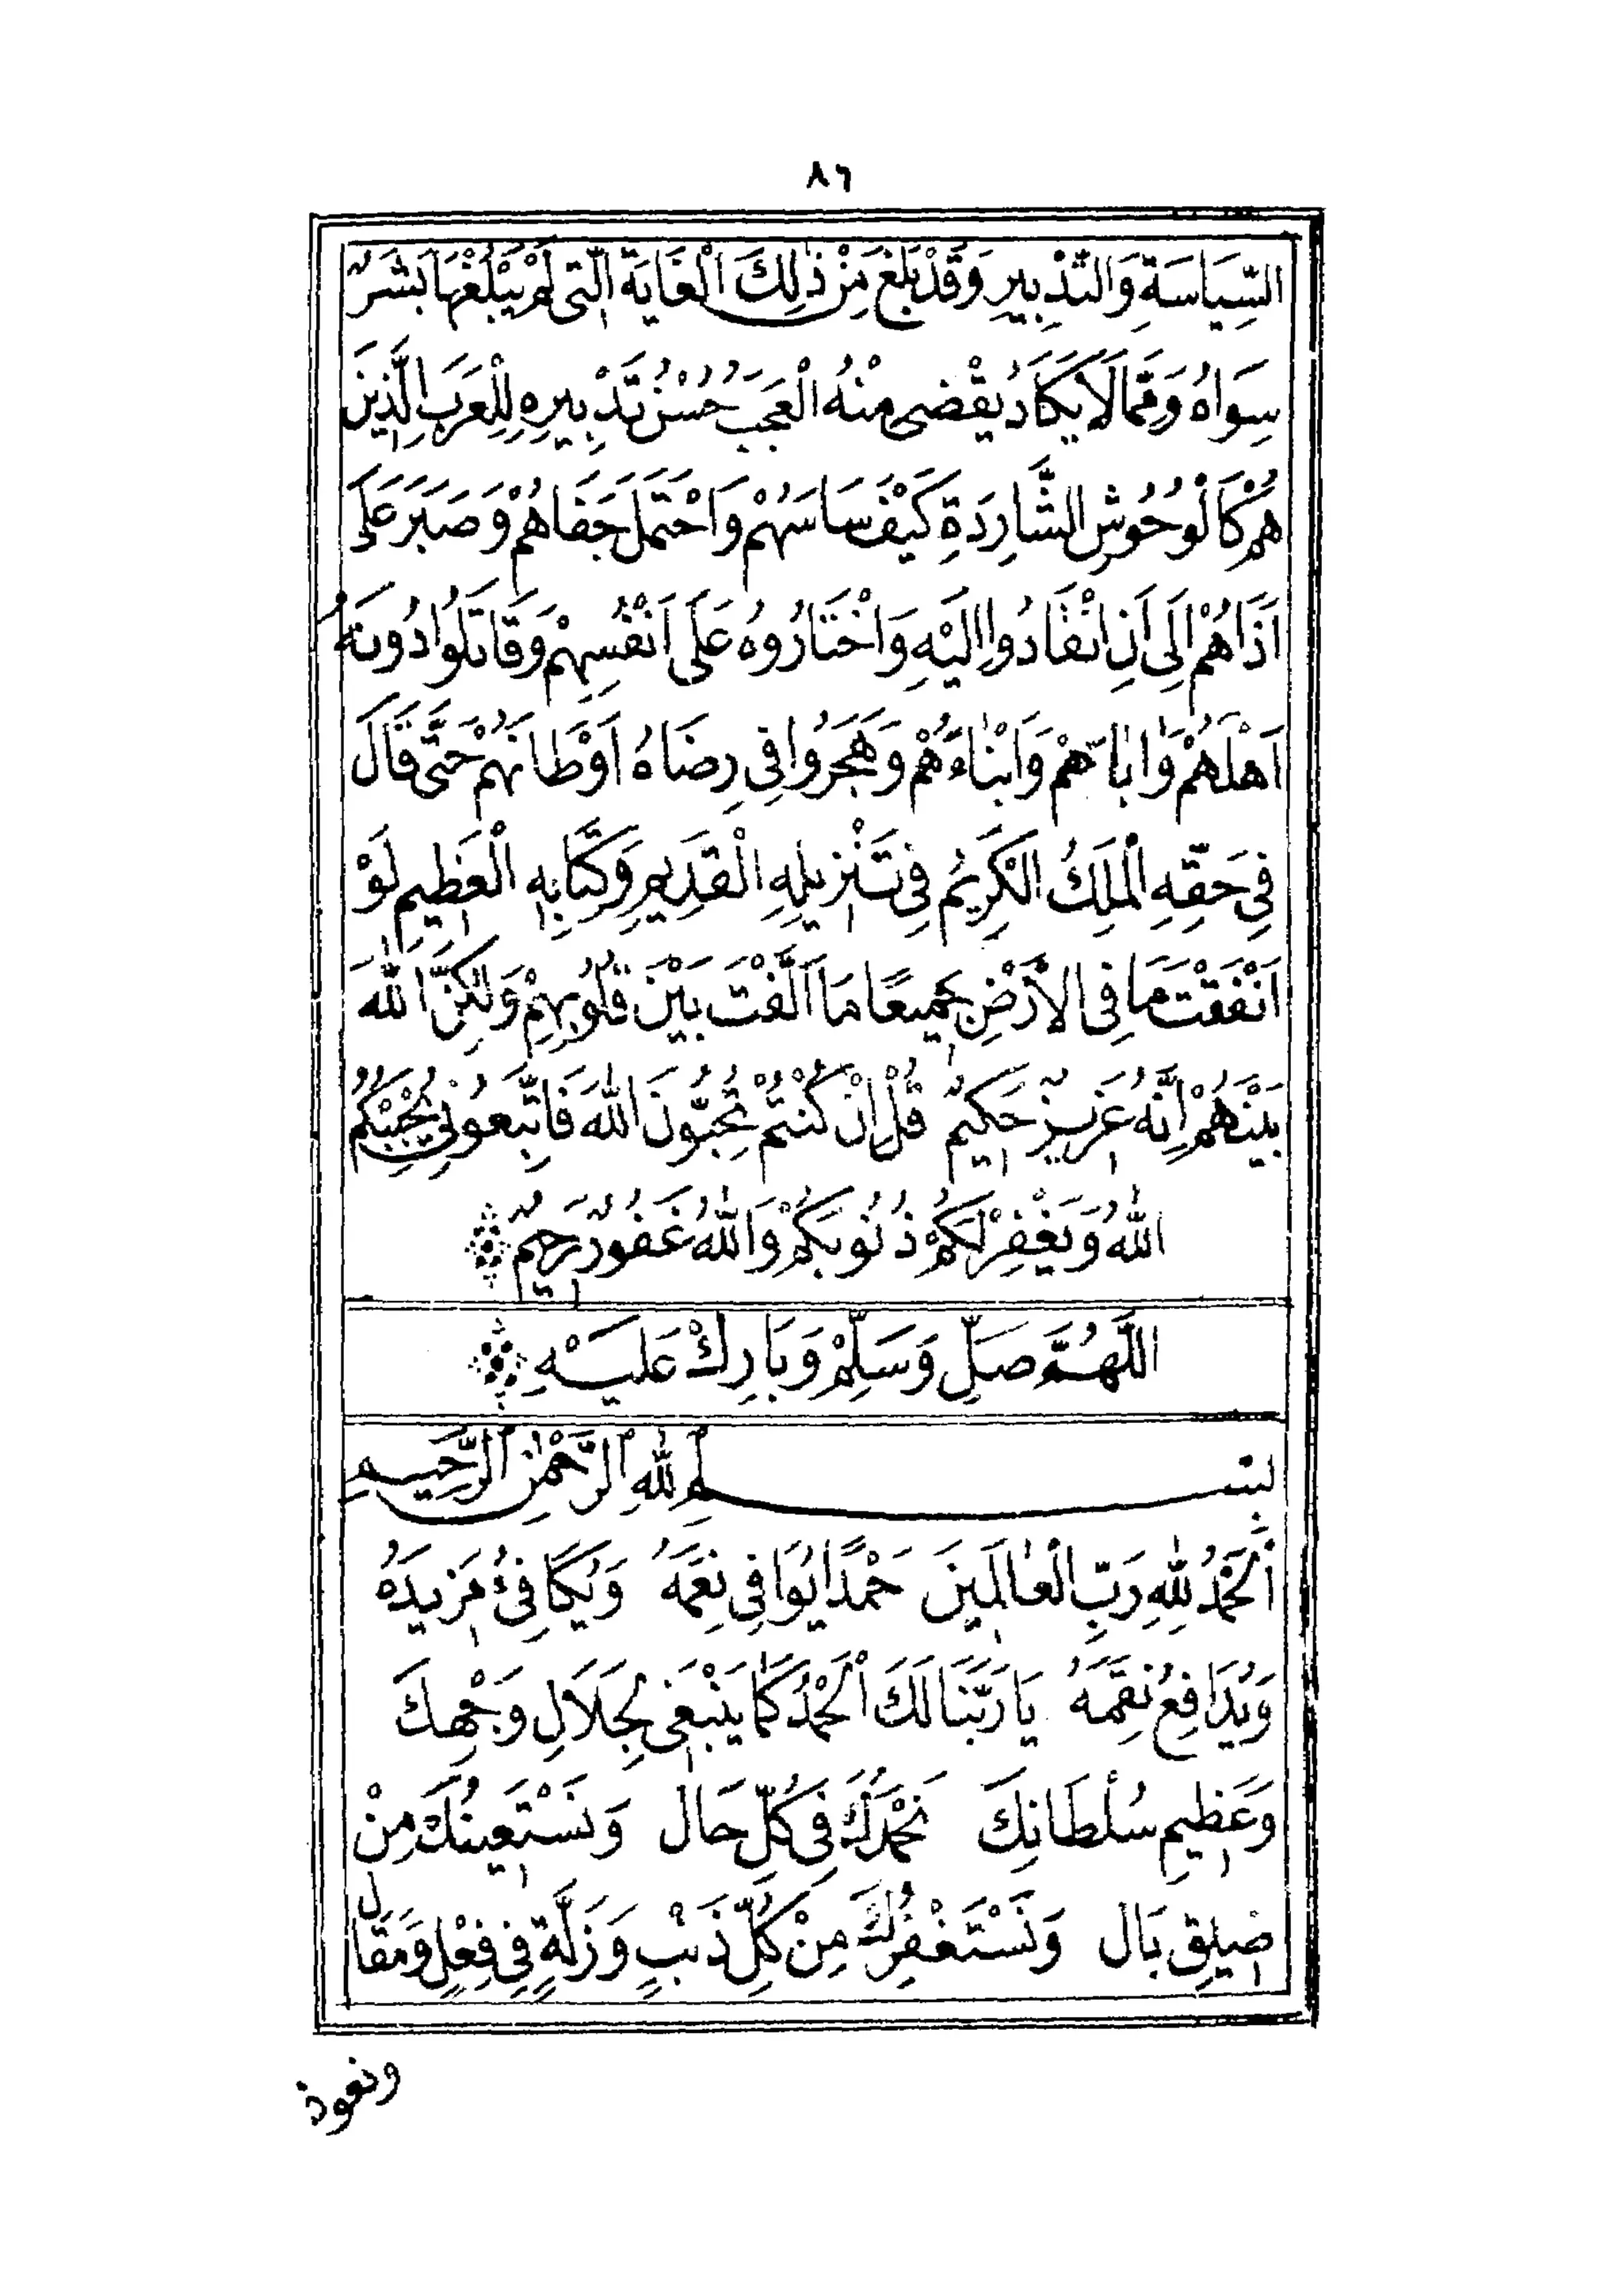 ٨٦
السِّيَاسَةِ وَالتَّدْبِيرِ وَقَدْ بَلَغَ مِنْ ذٰلِكَ الْغَايَةَ الَّتِي لَمْ يَبْلُغْهَا بَشَرٌ
سِوَاهُ وَمِمَّا لَا يَكَادُ يُقْضَى مِنْهُ الْعَجَبُ حُسْنُ تَدْبِيرِهِ لِلْعَرَبِ الَّذِينَ
هُمْ كَالْوُحُوشِ الشَّارِدَةِ كَيْفَ سَاسَهُمْ وَاحْتَمَلَ جَفَاهُمْ وَصَبَرَ عَلَى
اَذَاهُمْ اِلَى اَنِ انْقَادُوا اِلَيْهِ وَاخْتَارُوهُ عَلَى اَنْفُسِهِمْ وَقَاتَلُوا دُونَهُ
اَهْلَهُمْ وَاٰبَاءَهُمْ وَاَبْنَاءَهُمْ وَهَجَرُوا فِي رِضَاهُ اَوْطَانَهُمْ حَتَّى قَالَ
فِي حَقِّهِ الْمَلِكُ الْكَرِيمُ فِي تَنْزِيلِهِ الْقَدِيمِ وَكِتَابِهِ الْعَظِيمِ لَوْ
اَنْفَقْتَ مَا فِي الْاَرْضِ جَمِيعًا مَا اَلَّفْتَ بَيْنَ قُلُوبِهِمْ وَلٰكِنَّ اللّٰهَ
بَيْنَهُمْ اِنَّهُ عَزِيزٌ حَكِيمٌ قُلْ اِنْ كُنْتُمْ تُحِبُّونَ اللّٰهَ فَاتَّبِعُونِي يُحْبِبْكُمُ
اللّٰهُ وَيَغْفِرْ لَكُمْ ذُنُوبَكُمْ وَاللّٰهُ غَفُورٌ رَحِيمٌ
اللَّهُمَّ صَلِّ وَسَلِّمْ وَبَارِكْ عَلَيْهِ
بِسْمِ اللّٰهِ الرَّحْمٰنِ الرَّحِيمِ
اَلْحَمْدُ لِلّٰهِ رَبِّ الْعَالَمِينَ حَمْدًا يُوَافِي نِعَمَهُ وَيُكَافِئُ مَزِيدَهُ
وَيُدَافِعُ نِقَمَهُ يَا رَبَّنَا لَكَ الْحَمْدُ كَمَا يَنْبَغِي لِجَلَالِ وَجْهِكَ
وَعَظِيمِ سُلْطَانِكَ نَحْمَدُكَ فِي كُلِّ حَالٍ وَنَسْتَعِينُكَ مِنْ
ضِيقِ بَالٍ وَنَسْتَغْفِرُكَ مِنْ كُلِّ ذَنْبٍ وَزَلَّةٍ فِي فِعْلٍ وَمَقَال
ونعوذ